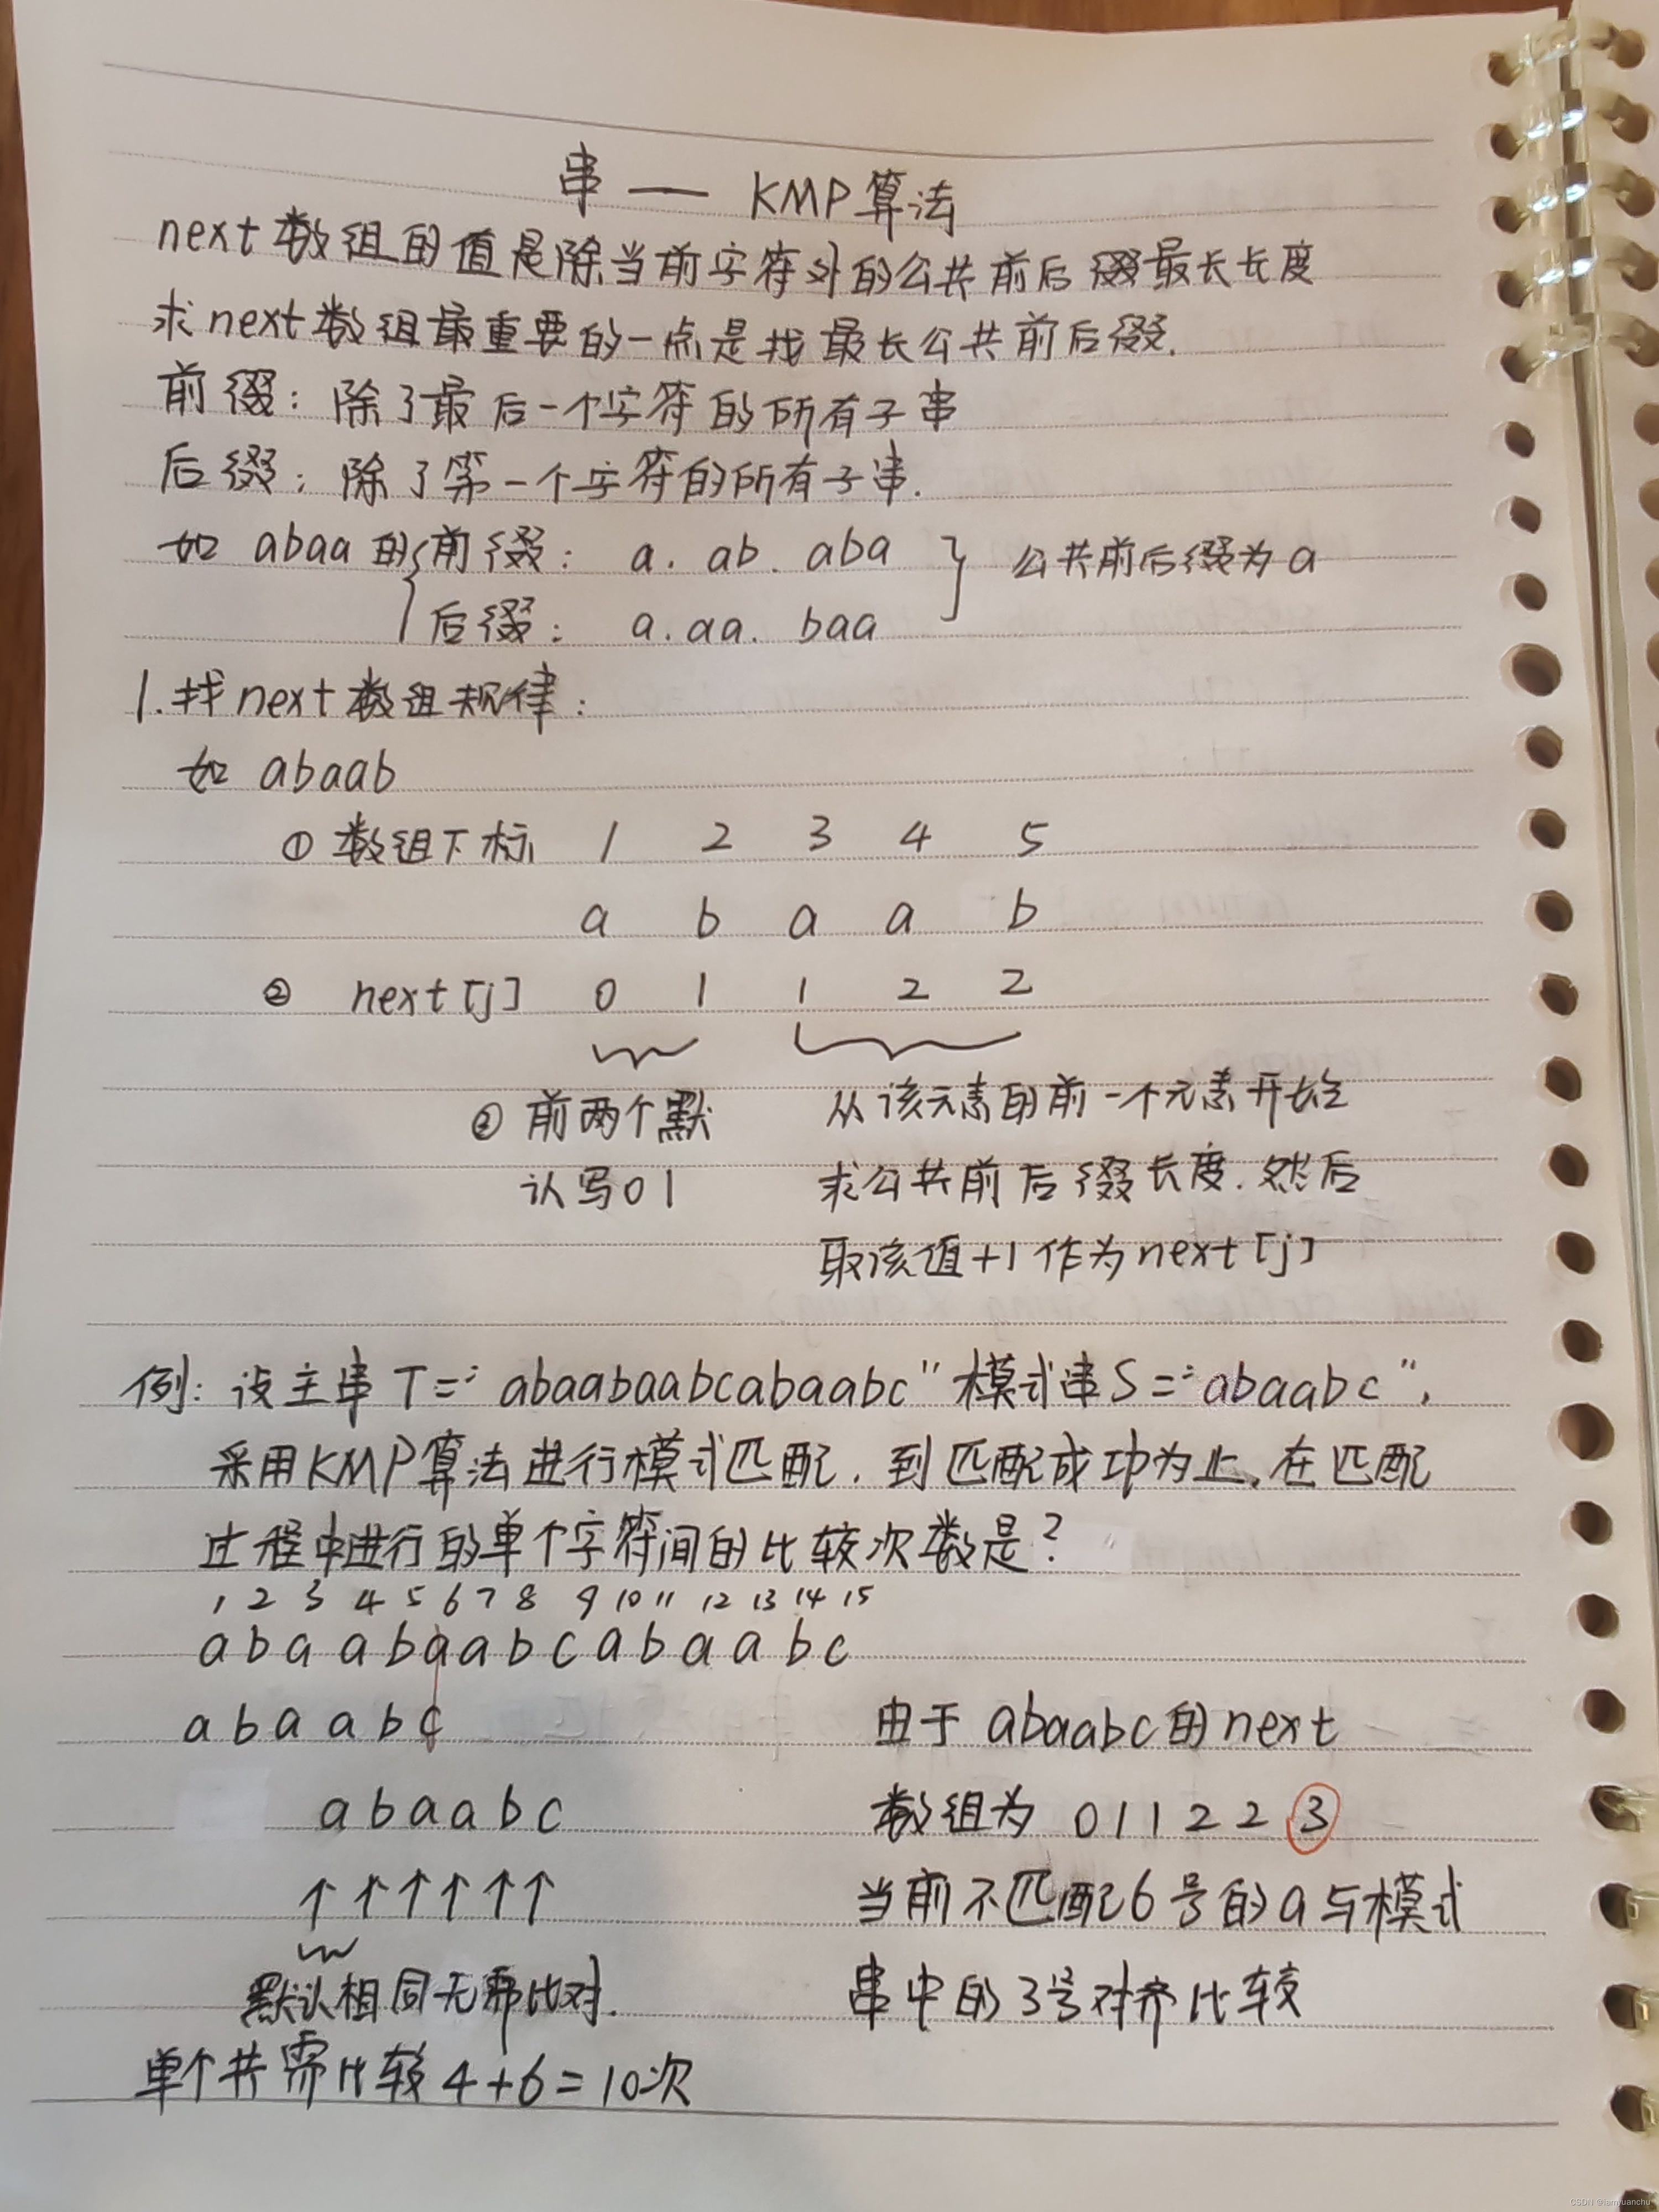 串 — KMP算法
next数组的值是除当前字符外的公共前后缀最长长度
求next数组最重要的一点是找最长公共前后缀.
前缀: 除了最后一个字符的所有子串
后缀: 除了第一个字符的所有子串.
如 abaa 的{前缀: a. ab. aba } 公共前后缀为a
后缀: a. aa. baa
1.找next数组规律:
如 abaab
① 数组下标 1 2 3 4 5
a b a a b
② next[j] 0 1 1 2 2
② 前两个默 从该元素的前一个元素开始
认写01 求公共前后缀长度.然后
取该值+1作为next[j]
例: 设主串T="abaabaabcabaabc"模式串S="abaabc",
采用KMP算法进行模式匹配.到匹配成功为止,在匹配
过程中进行的单个字符间的比较次数是?
1 2 3 4 5 6 7 8 9 10 11 12 13 14 15
a b a a b a a b c a b a a b c
a b a a b c 由于 abaabc的next
a b a a b c 数组为 0 1 1 2 2 3
↑ ↑ ↑ ↑ ↑ ↑ 当前不匹配6号的a与模式
默认相同无需比对. 串中的3号对齐比较
单个共需比较4+6=10次
CSDN @ianyuanchu